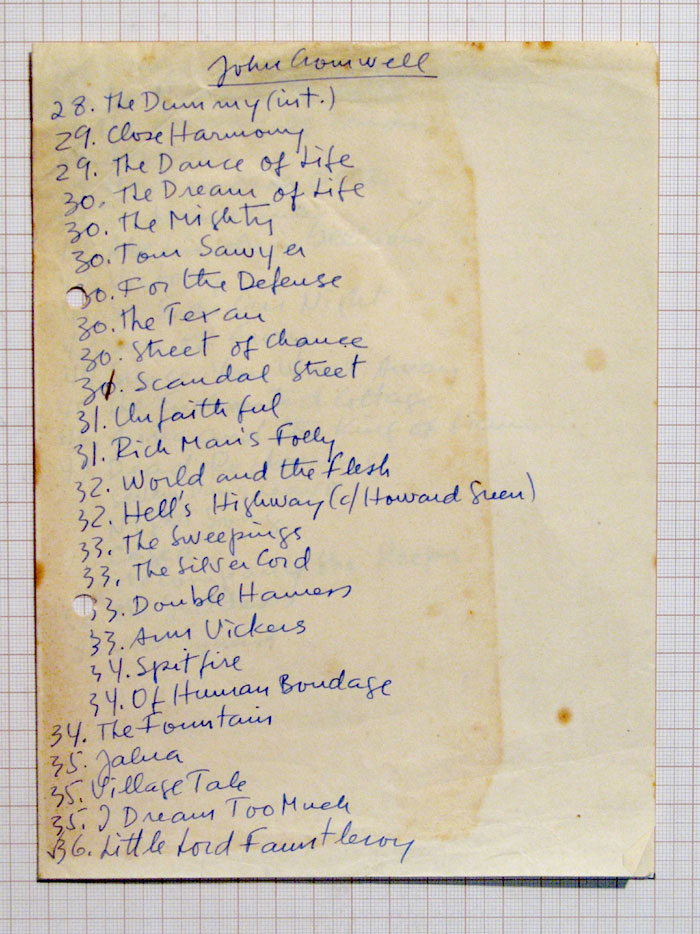 John Cromwell
28. The Dummy (int.)
29. Close Harmony
29. The Dance of Life
30. The Dream of Life
30. The Mighty
30. Tom Sawyer
30. For the Defense
30. The Texan
30. Street of Chance
30. Scandal Street
31. Unfaithful
31. Rich Man's Folly
32. World and the Flesh
32. Hell's Highway (c/Howard Green)
33. The Sweepings
33. The Silver Cord
33. Double Harness
33. Ann Vickers
34. Spitfire
34. Of Human Bondage
34. The Fountain
35. Jalna
35. Village Tale
35. I Dream Too Much
36. Little Lord Fauntleroy